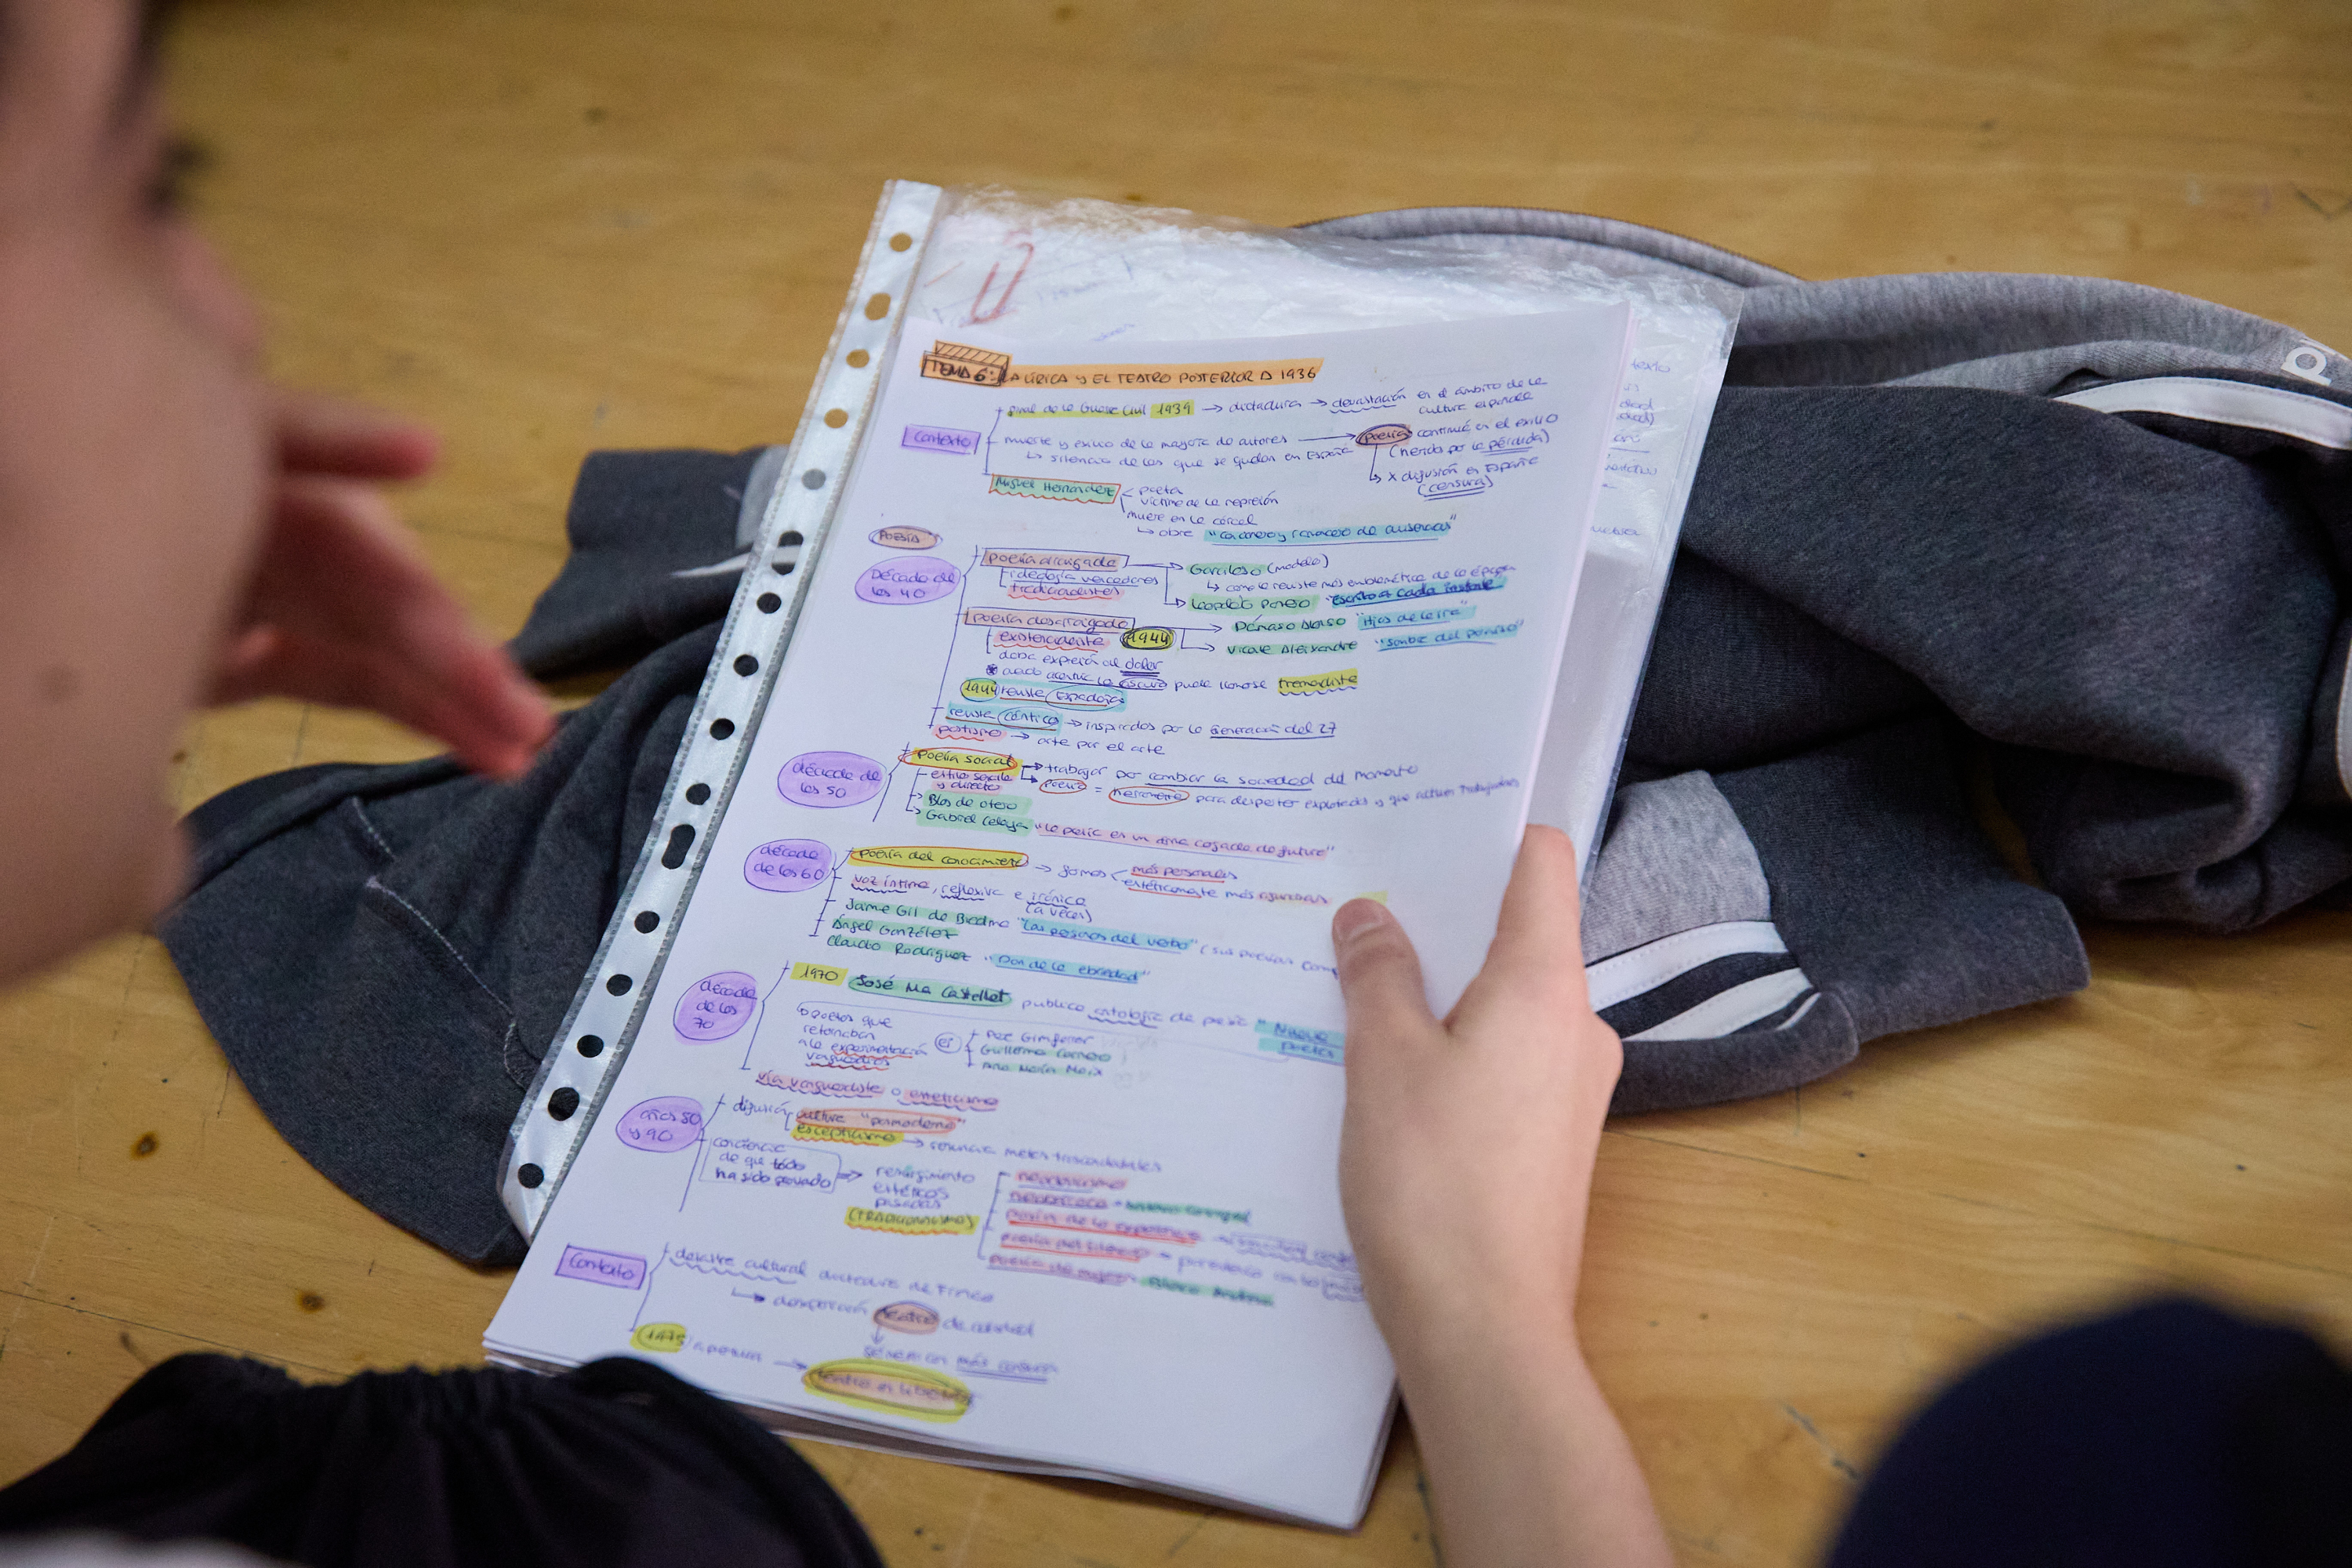 TEMA 6: LA LÍRICA Y EL TEATRO POSTERIOR A 1936
Contexto
final de la Guerra Civil 1939 → dictadura → devastación en el ámbito de la
cultura española
muerte y exilio de la mayoría de autores → poesía continuó en el exilio
↳ silencio de los que se quedan en España
(herida por la pérdida)
↳ x difusión en España
(censura)
Miguel Hernández
poeta
víctima de la represión
muere en la cárcel
↳ obra "Cancionero y romancero de ausencias"
POESÍA
Década de
los 40
poesía arraigada
ideología vencedores
Garcilaso (modelo)
↳ como la revista más emblemática de la época
Leopoldo Panero "Escrito a cada instante"
poesía desarraigada
existencialista 1944
Dámaso Alonso "Hijos de la ira"
Vicente Aleixandre "Sombra del paraíso"
daba expresión al dolor
puede llamarse tremendista
1944 revista Espadaña
revista Cántico → inspirados por la Generación del 27
postismo → arte por el arte
década de
los 50
poesía social
→ trabajar por cambiar la sociedad del momento
estilo sencillo
y directo
poesía = herramienta para despertar explotados y que actúen trabajadores
Blas de Otero
Gabriel Celaya "la poesía es un arma cargada de futuro"
década
de los 60
poesía del conocimiento → formas
más personales
estéticamente más
voz íntima, reflexiva e irónica
(a veces)
Jaime Gil de Biedma "Las personas del verbo" (sus poesías comp
Ángel González
Claudio Rodríguez "Don de la ebriedad"
década
de los
70
1970 José Ma Castellet publica antología de poesía "Nueve
poetas
poetas que
retomaban
la experimentación
vanguardias
Pere Gimferrer
Guillermo Carnero
Ana María Moix
vía vanguardista o esteticismo
años 80
y 90
difusión
cultura "posmoderna"
escepticismo → renuncia metas trascendentales
conciencia
de que todo
ha sido probado
resurgimiento
estéticas
pasadas
(TRADICIONALISMO)
poesía de la experiencia
poesía del silencio
Contexto
desastre cultural dictadura de Franco
↳ desaparición teatro de calidad
género con más censura
1975 apertura → teatro en libertad